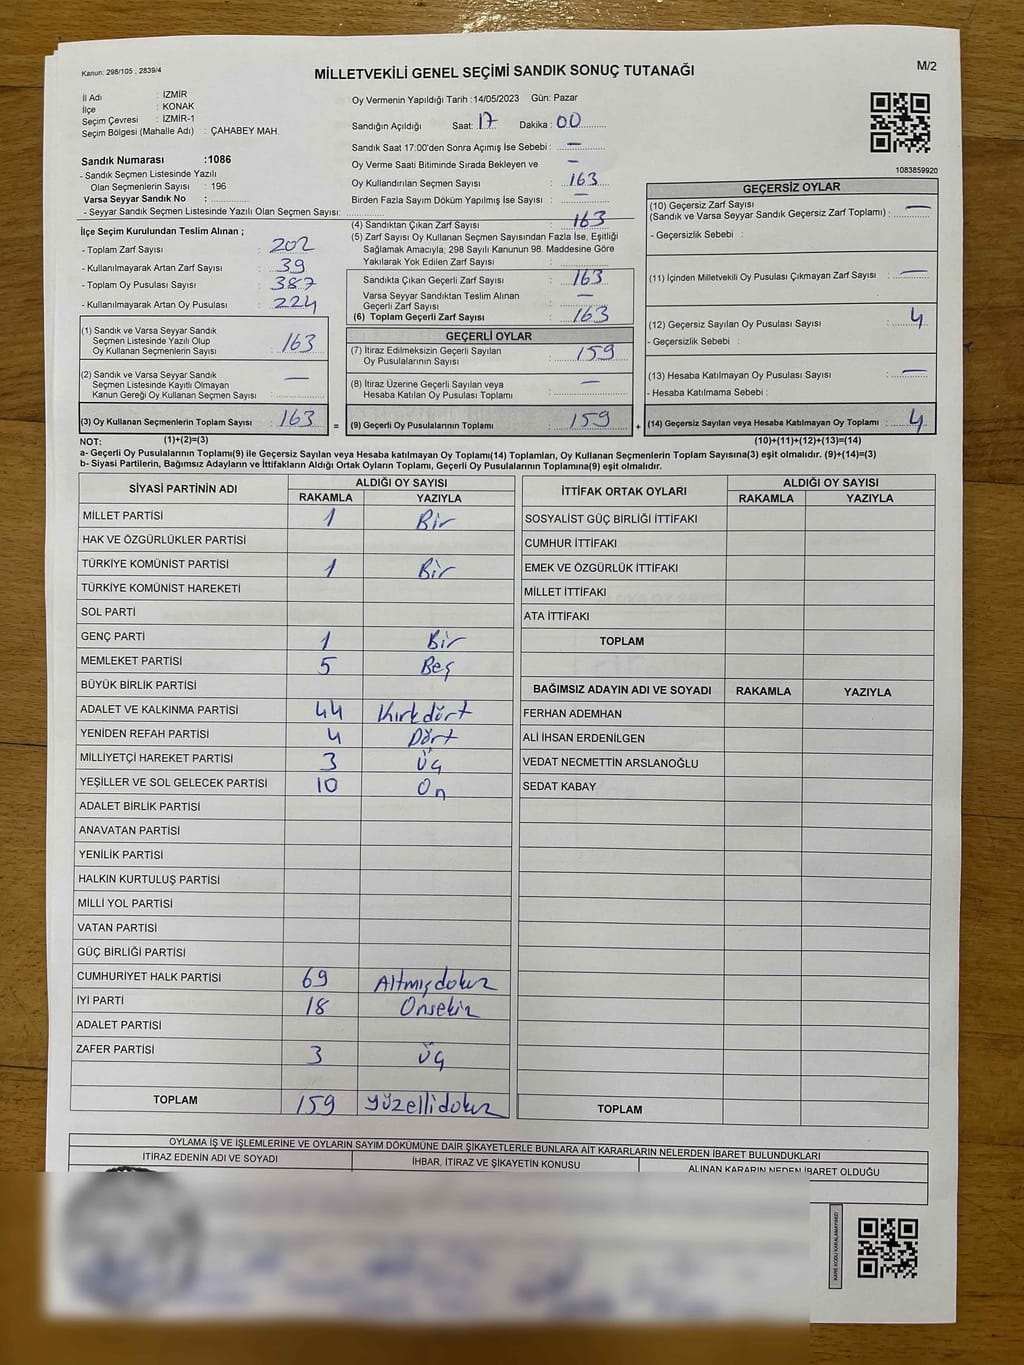 Kanun: 298/105 , 2839/4
MİLLETVEKİLİ GENEL SEÇİMİ SANDIK SONUÇ TUTANAĞI
M/2
İl Adı : İZMİR
İlçe : KONAK
Seçim Çevresi : İZMİR-1
Seçim Bölgesi (Mahalle Adı) : ÇAHABEY MAH.
Sandık Numarası :1086
- Sandık Seçmen Listesinde Yazılı
Olan Seçmenlerin Sayısı : 196
Varsa Seyyar Sandık No :
- Seyyar Sandık Seçmen Listesinde Yazılı Olan Seçmen Sayısı:
İlçe Seçim Kurulundan Teslim Alınan ;
- Toplam Zarf Sayısı : 202
- Kullanılmayarak Artan Zarf Sayısı : 39
- Toplam Oy Pusulası Sayısı : 387
- Kullanılmayarak Artan Oy Pusulası : 224
(1) Sandık ve Varsa Seyyar Sandık
Seçmen Listesinde Yazılı Olup
Oy Kullanan Seçmenlerin Sayısı : 163
(2) Sandık ve Varsa Seyyar Sandık
Seçmen Listesinde Kayıtlı Olmayan
Kanun Gereği Oy Kullanan Seçmen Sayısı : —
(3) Oy Kullanan Seçmenlerin Toplam Sayısı : 163
Oy Vermenin Yapıldığı Tarih :14/05/2023 Gün: Pazar
Sandığın Açıldığı Saat: 17 Dakika : 00
Sandık Saat 17:00'den Sonra Açımış İse Sebebi : —
Oy Verme Saati Bitiminde Sırada Bekleyen ve —
Oy Kullandırılan Seçmen Sayısı : 163
Birden Fazla Sayım Döküm Yapılmış İse Sayısı :
(4) Sandıktan Çıkan Zarf Sayısı : 163
(5) Zarf Sayısı Oy Kullanan Seçmen Sayısından Fazla İse, Eşitliği
Sağlamak Amacıyla; 298 Sayılı Kanunun 98. Maddesine Göre
Yakılarak Yok Edilen Zarf Sayısı :
Sandıkta Çıkan Geçerli Zarf Sayısı : 163
Varsa Seyyar Sandıktan Teslim Alınan
Geçerli Zarf Sayısı : —
(6) Toplam Geçerli Zarf Sayısı : 163
GEÇERLİ OYLAR
(7) İtiraz Edilmeksizin Geçerli Sayılan
Oy Pusulalarının Sayısı : 159
(8) İtiraz Üzerine Geçerli Sayılan veya
Hesaba Katılan Oy Pusulası Toplamı : —
= (9) Geçerli Oy Pusulalarının Toplamı : 159
1083859920
GEÇERSİZ OYLAR
(10) Geçersiz Zarf Sayısı
(Sandık ve Varsa Seyyar Sandık Geçersiz Zarf Toplamı) : —
- Geçersizlik Sebebi :
(11) İçinden Milletvekili Oy Pusulası Çıkmayan Zarf Sayısı : —
(12) Geçersiz Sayılan Oy Pusulası Sayısı : 4
- Geçersizlik Sebebi :
(13) Hesaba Katılmayan Oy Pusulası Sayısı : —
- Hesaba Katılmama Sebebi :
+ (14) Geçersiz Sayılan veya Hesaba Katılmayan Oy Toplamı : 4
NOT: (1)+(2)=(3) (10)+(11)+(12)+(13)=(14)
a- Geçerli Oy Pusulalarının Toplamı(9) ile Geçersiz Sayılan veya Hesaba katılmayan Oy Toplamı(14) Toplamları, Oy Kullanan Seçmenlerin Toplam Sayısına(3) eşit olmalıdır. (9)+(14)=(3)
b- Siyasi Partilerin, Bağımsız Adayların ve İttifakların Aldığı Ortak Oyların Toplamı, Geçerli Oy Pusulalarının Toplamına(9) eşit olmalıdır.
SİYASİ PARTİNİN ADI ALDIĞI OY SAYISI
RAKAMLA YAZIYLA
MİLLET PARTİSİ 1 Bir
HAK VE ÖZGÜRLÜKLER PARTİSİ
TÜRKİYE KOMÜNİST PARTİSİ 1 Bir
TÜRKİYE KOMÜNİST HAREKETİ
SOL PARTİ
GENÇ PARTİ 1 Bir
MEMLEKET PARTİSİ 5 Beş
BÜYÜK BİRLİK PARTİSİ
ADALET VE KALKINMA PARTİSİ 44 Kırkdört
YENİDEN REFAH PARTİSİ 4 Dört
MİLLİYETÇİ HAREKET PARTİSİ 3 Üç
YEŞİLLER VE SOL GELECEK PARTİSİ 10 On
ADALET BİRLİK PARTİSİ
ANAVATAN PARTİSİ
YENİLİK PARTİSİ
HALKIN KURTULUŞ PARTİSİ
MİLLİ YOL PARTİSİ
VATAN PARTİSİ
GÜÇ BİRLİĞİ PARTİSİ
CUMHURİYET HALK PARTİSİ 69 Altmışdokuz
İYİ PARTİ 18 Onsekiz
ADALET PARTİSİ
ZAFER PARTİSİ 3 Üç
TOPLAM 159 Yüzellidokuz
İTTİFAK ORTAK OYLARI ALDIĞI OY SAYISI
RAKAMLA YAZIYLA
SOSYALİST GÜÇ BİRLİĞİ İTTİFAKI
CUMHUR İTTİFAKI
EMEK VE ÖZGÜRLÜK İTTİFAKI
MİLLET İTTİFAKI
ATA İTTİFAKI
TOPLAM
BAĞIMSIZ ADAYIN ADI VE SOYADI RAKAMLA YAZIYLA
FERHAN ADEMHAN
ALİ İHSAN ERDENİLGEN
VEDAT NECMETTİN ARSLANOĞLU
SEDAT KABAY
TOPLAM
OYLAMA İŞ VE İŞLEMLERİNE VE OYLARIN SAYIM DÖKÜMÜNE DAİR ŞİKAYETLERLE BUNLARA AİT KARARLARIN NELERDEN İBARET BULUNDUKLARI
İTİRAZ EDENİN ADI VE SOYADI İHBAR, İTİRAZ VE ŞİKAYETİN KONUSU ALINAN KARARIN NEDEN İBARET OLDUĞU